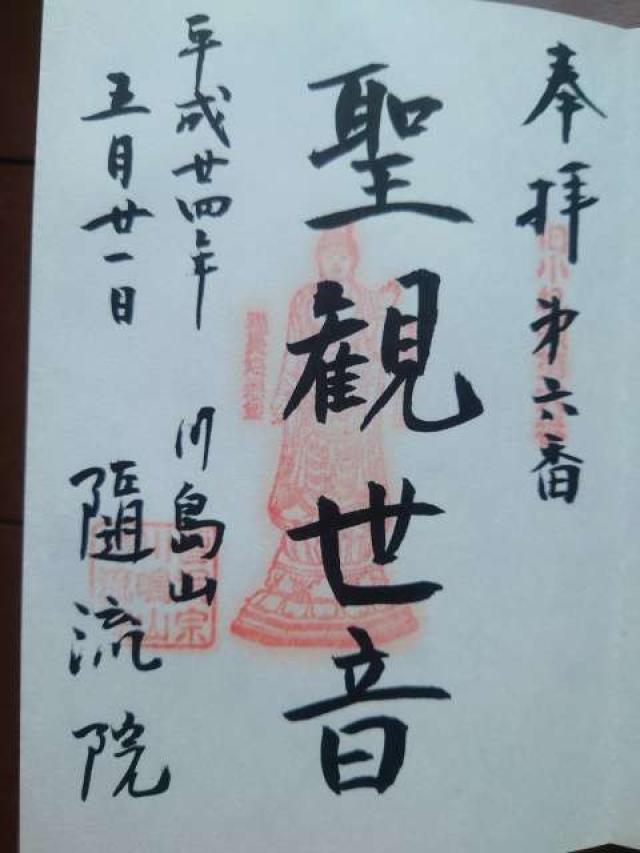 奉拝 第六番
聖観世音
平成廿四年
五月廿一日
川島山
隨流院